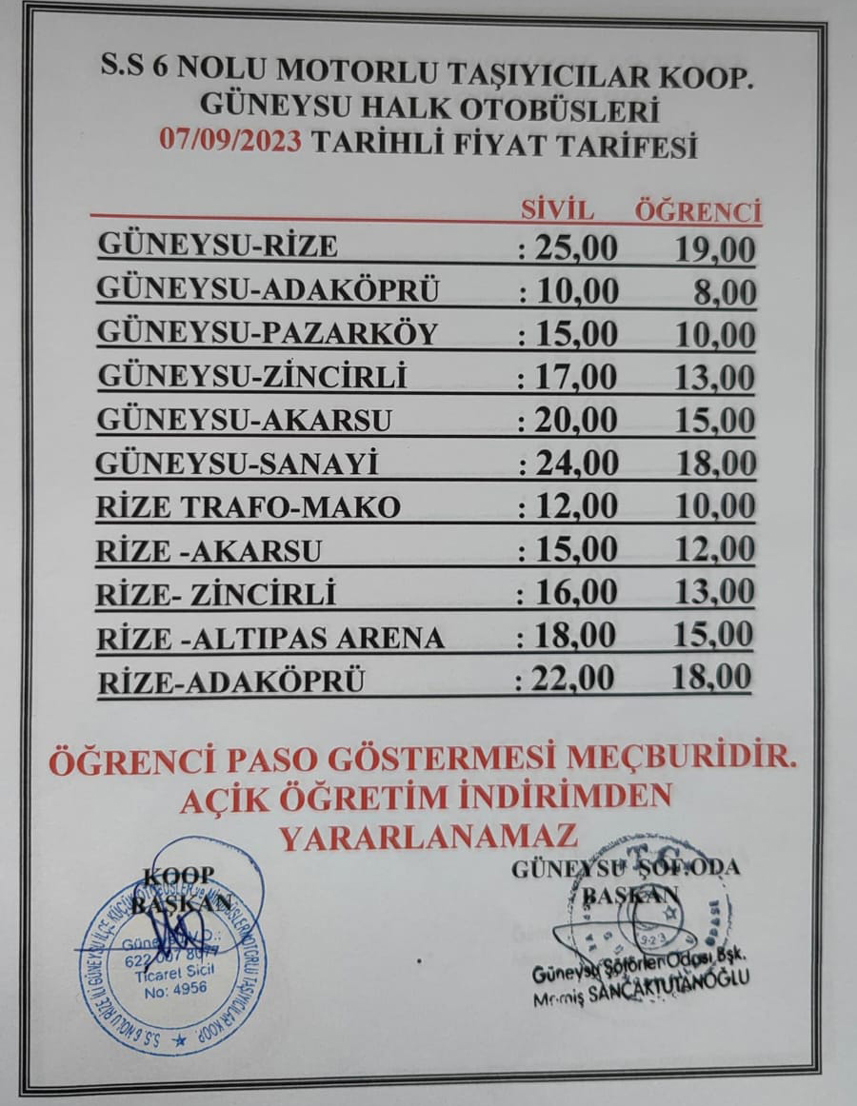 S.S 6 NOLU MOTORLU TAŞIYICILAR KOOP.
GÜNEYSU HALK OTOBÜSLERİ
07/09/2023 TARİHLİ FİYAT TARİFESİ
SİVİL ÖĞRENCİ
GÜNEYSU-RİZE : 25,00 19,00
GÜNEYSU-ADAKÖPRÜ : 10,00 8,00
GÜNEYSU-PAZARKÖY : 15,00 10,00
GÜNEYSU-ZİNCİRLİ : 17,00 13,00
GÜNEYSU-AKARSU : 20,00 15,00
GÜNEYSU-SANAYİ : 24,00 18,00
RİZE TRAFO-MAKO : 12,00 10,00
RİZE -AKARSU : 15,00 12,00
RİZE- ZİNCİRLİ : 16,00 13,00
RİZE -ALTIPAS ARENA : 18,00 15,00
RİZE-ADAKÖPRÜ : 22,00 18,00
ÖĞRENCİ PASO GÖSTERMESİ MEÇBURİDİR.
AÇİK ÖĞRETİM İNDİRİMDEN
YARARLANAMAZ
KOOP
BAŞKAN
S.S. 6 NOLU RİZE İLİ GÜNEYSU İLÇE KÜÇÜK OTOBÜSLER ve MİNİBÜSLER MOTORLU TAŞIYICILAR KOOP.
622 007 8077
Ticaret Sicil
No: 4956
GÜNEYSU ŞOF.ODA
BAŞKAN
T.C.
Güneysu Şoförler Odası Bşk.
SANCAKTUTANOĞLU